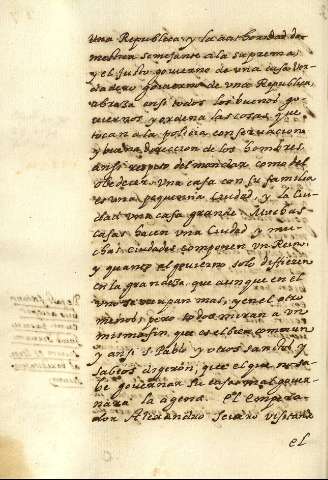 una Republica, y la autoridad do-
mestica semejante a la suprema,
y el justo govierno de una casa ver-
dadero govierno de una Republica,
abraza en si todos los buenos go-
viernos y ordena las cosas, que
tocan a la policia conservacion,
y buena direccion de los hombres,
ansi respeto del mandar como del
obedecer. Una casa con su familia
es una pequeña Ciudad, y la Ciu-
dad una casa grande. Muchas
casas hacen una Ciudad y mu-
chas ciudades componen un Reino,
y quanto al govierno solo difieren
en la grandeza, que aunque en el
uno se ocupan mas, y en el otro
menos; pero todos miran a un
mismo fin, que es el bien comun
y ansi S. Pablo y otros santos, y
sabios dixeron; que el que no sa-
be governar su casa mal gover-
nara la agena. El Empera-
dor Alexandro Severo visitava
el